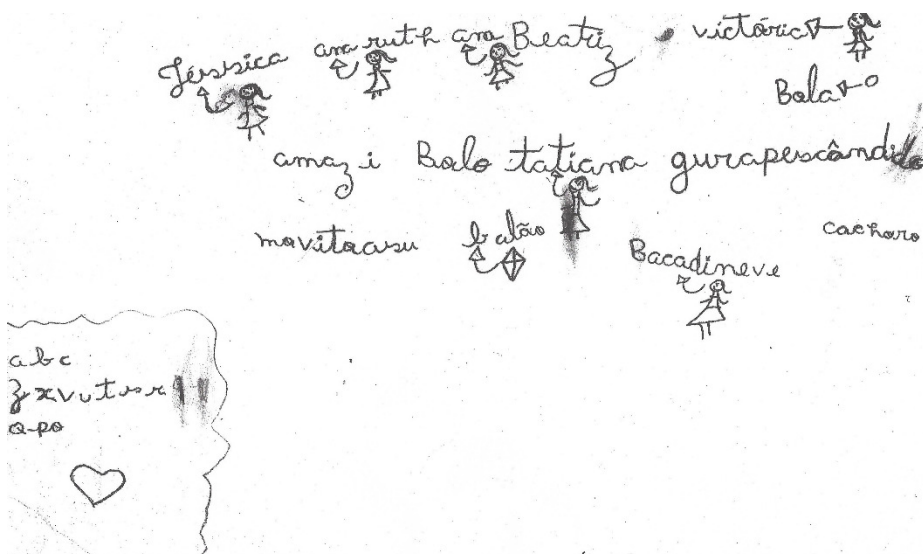 Jéssica ana ruth ana Beatriz victória
Bola
amazi Bolo tatiana gurapescândido
movitacasu balão cachoro
Bacadineve
abc
zxvutsr
q-po